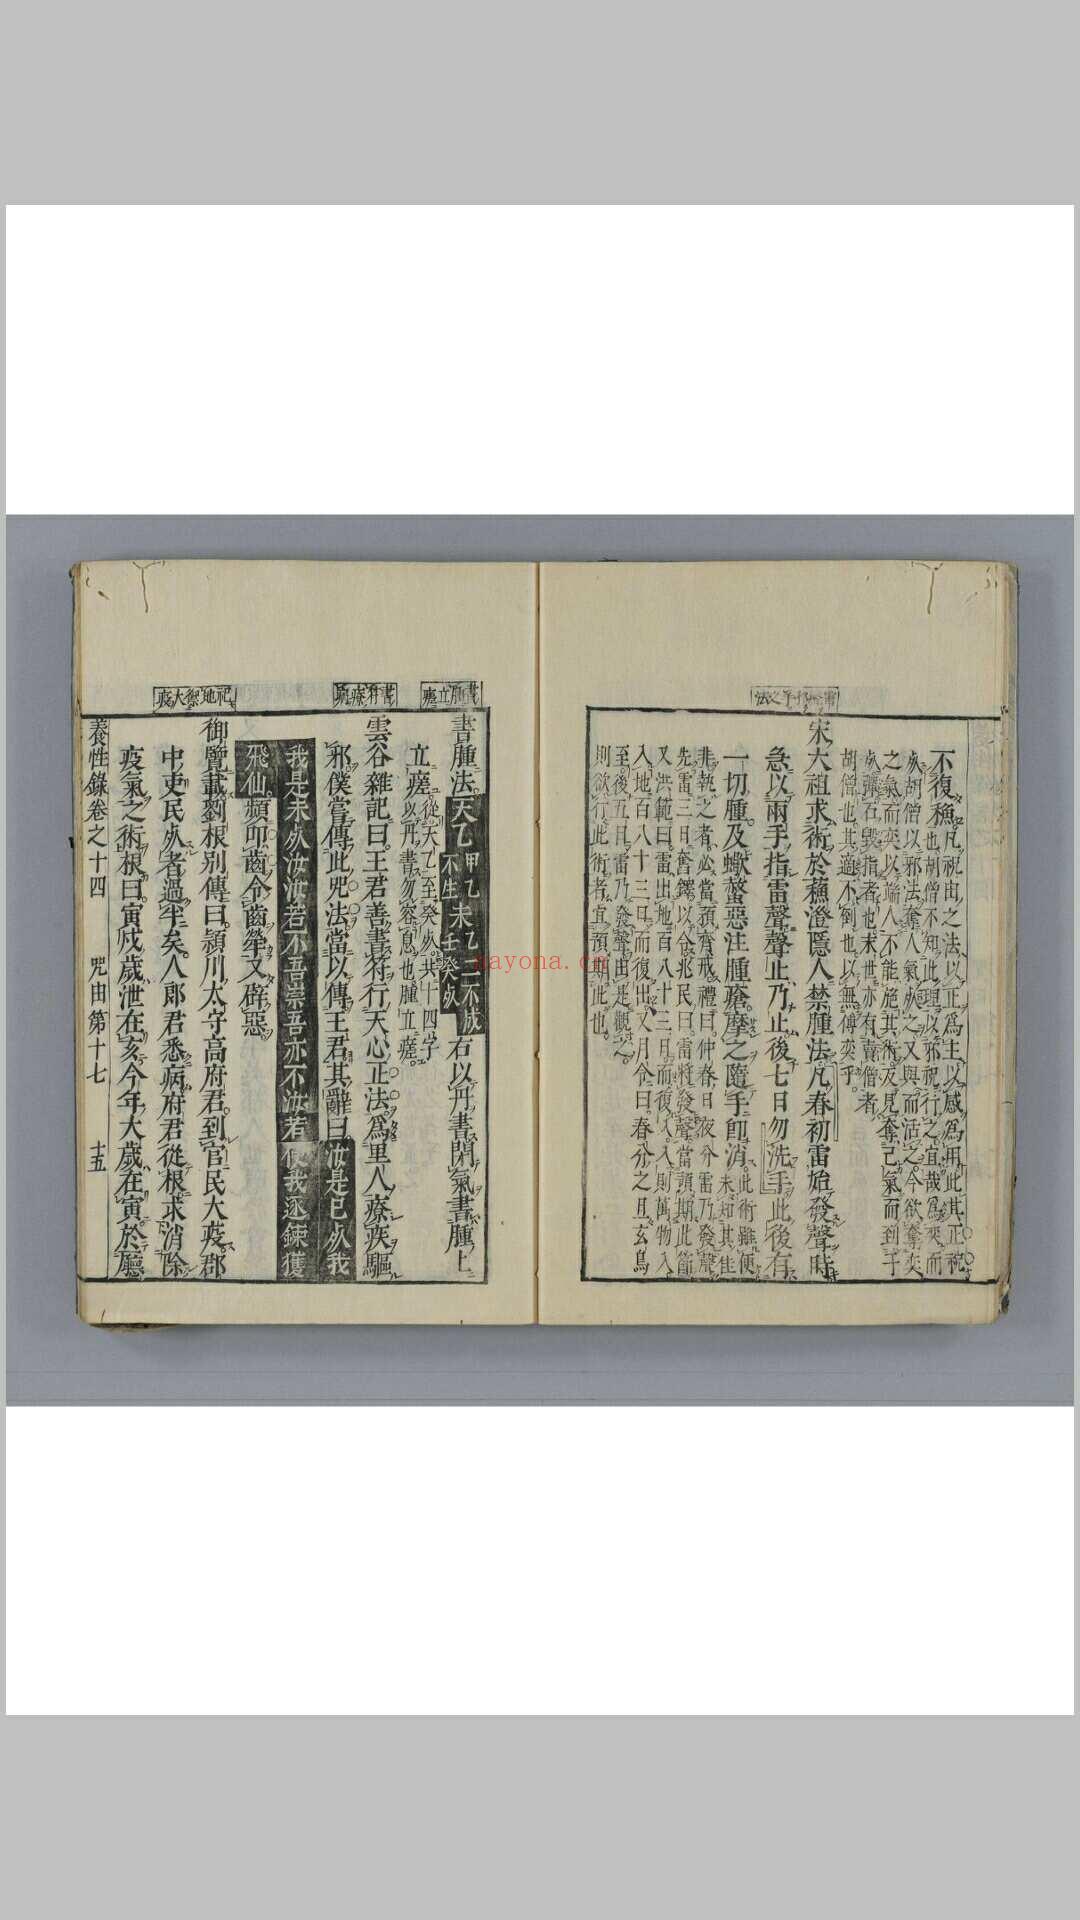 不復穐。凡祝由之法以正爲主以感爲用此其正祝
也胡僧不知此理以邪祝行之宜哉爲奕而
死胡僧以邪法奪人氣死之又與而活之今欲奪奕
之氣而奕以端人不能施其術反見奪己氣而到于
死彈石毀指者也末世亦有賣僧者
胡僧也其適不倒也以無傅奕乎。
宋大祖求術於蘓澄隱人禁腫法。凡春初雷始發聲時
急以兩手指雷聲聲止乃止。後七日勿洗手。此後有
一切腫及蠍螫惡注腫瘡摩之隨手卽消。此術雖便
未知其佳
非執之者。必當預齊戒禮曰。仲春日夜分雷乃發聲
先雷三日奮鐸以令兆民曰。雷將發聲當預期此節
又洪範曰雷出地百八十三日而復入。入則萬物入
入地百八十三日而復出又月令曰春分之日玄鳥
至。後五日雷乃發聲由是觀之。
則欲行此術者宜預期此也。
書立瘥
書腫法。天乙甲乙未乙一不成
不生壬癸死
右以丹書閉氣書腫上
立瘥。從天乙至癸死。共十四字
以丹書勿容息也腫立瘥。
書符療
雲谷雜記曰。王君善書符行天心正法。爲里人療疾驅
邪僕嘗傳此呪法當以傳王君其辭曰汝是已死我
我是未死汝汝若不吾祟吾亦不汝若使我逐鍊獲
飛仙。頻叩齒令齒犖又辟惡。
祀地禦大疫
御覽載劉根別傳曰。頴川太守高府君。到官民大疫。郡
中吏民死者過半矣。人郞君悉病府君從根求消除
疫氣之術。根曰寅戌歲泄在亥今年大歲在寅。於廳
養性錄卷之十四　呪由第十七　十五
nayona.cn